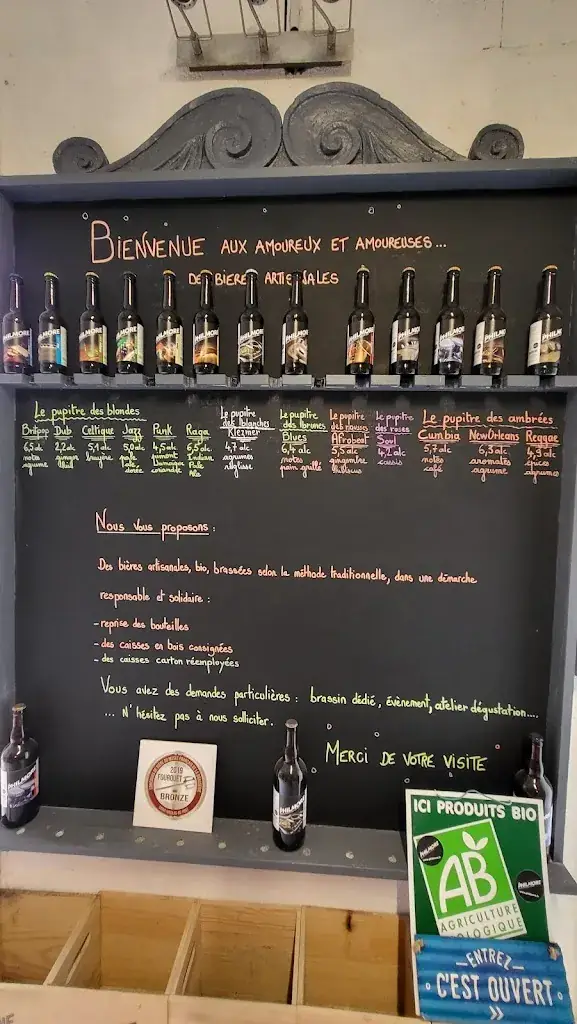 BIENVENUE AUX AMOUREUX ET AMOUREUSES...
DE BIERES ARTISANALES
PHILMORE
Le pupitre des blondes
Britpop
6,5 alc
notes
agrume
Dub
2,2 alc
Celtique
5,1 alc
bruyère
Jazz
5,0 alc
pale
ale
dorée
Punk
4,5 alc
piment
Jamaïque
coriandre
Raga
6,5 alc
Indian
Pale
Ale
Le pupitre
des blanches
Klezmer
4,7 alc
agrumes
réglisse
Le pupitre
des brunes
Blues
6,4 alc
notes
pain grillé
Le pupitre
des rousses
Afrobeat
5,5 alc
gingembre
hibiscus
Le pupitre
des roses
Soul
4,2 alc
cassis
Le pupitre des ambrées
Cumbia
5,7 alc
notes
café
New Orleans
6,3 alc
aromates
agrume
Reggae
4,3 alc
épices
agrumes
Nous vous proposons :
Des bières artisanales, bio, brassées selon la méthode traditionnelle, dans une démarche
responsable et solidaire :
- reprise des bouteilles
- des caisses en bois consignées
- des caisses carton réemployées
Vous avez des demandes particulières : brassin dédié, évènement, atelier dégustation....
... N'hésitez pas à nous solliciter.
MERCI DE VOTRE VISITE
2019
FOURQUET
BRONZE
PHILMORE
ICI PRODUITS BIO
PHILMORE
AB
AGRICULTURE
BIOLOGIQUE
PHILMORE
ENTREZ
C'EST OUVERT